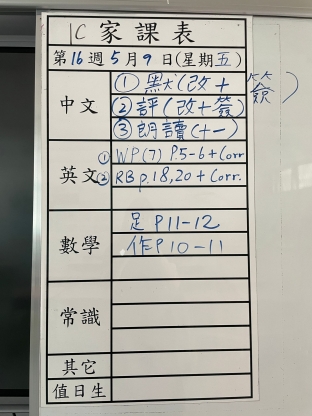 1C 家課表
第16週5月9日(星期五)
中文
① 默(改+簽)
② 評(改+簽)
③ 朗讀(十一)
英文
① WP(7) P.5-6 + Corr
② RB p.18,20 + Corr.
數學
足 P11-12
作 P10-11
常識
其它
值日生